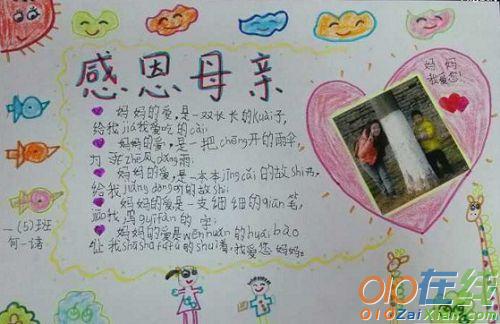 感恩母亲
妈妈
我爱您!
妈妈的爱,是一双长长的Kuài子,
给我jiá我爱吃的cài.
妈妈的爱,是一把chēng开的雨伞,
为 zhē风dǎng雨.
妈妈的爱,是一本本jīng cǎi的故shi书,
给我jiǎng dòng听的故shi.
妈妈的爱是一支细细的qiān笔,
画我 guī fàn的字.
妈妈的爱是wēn nuǎn的huái bào
让我shū shū fú fú的shuì 着.我爱您妈妈.
一(5)班
何一诺
010在线
010ZaiXian.com